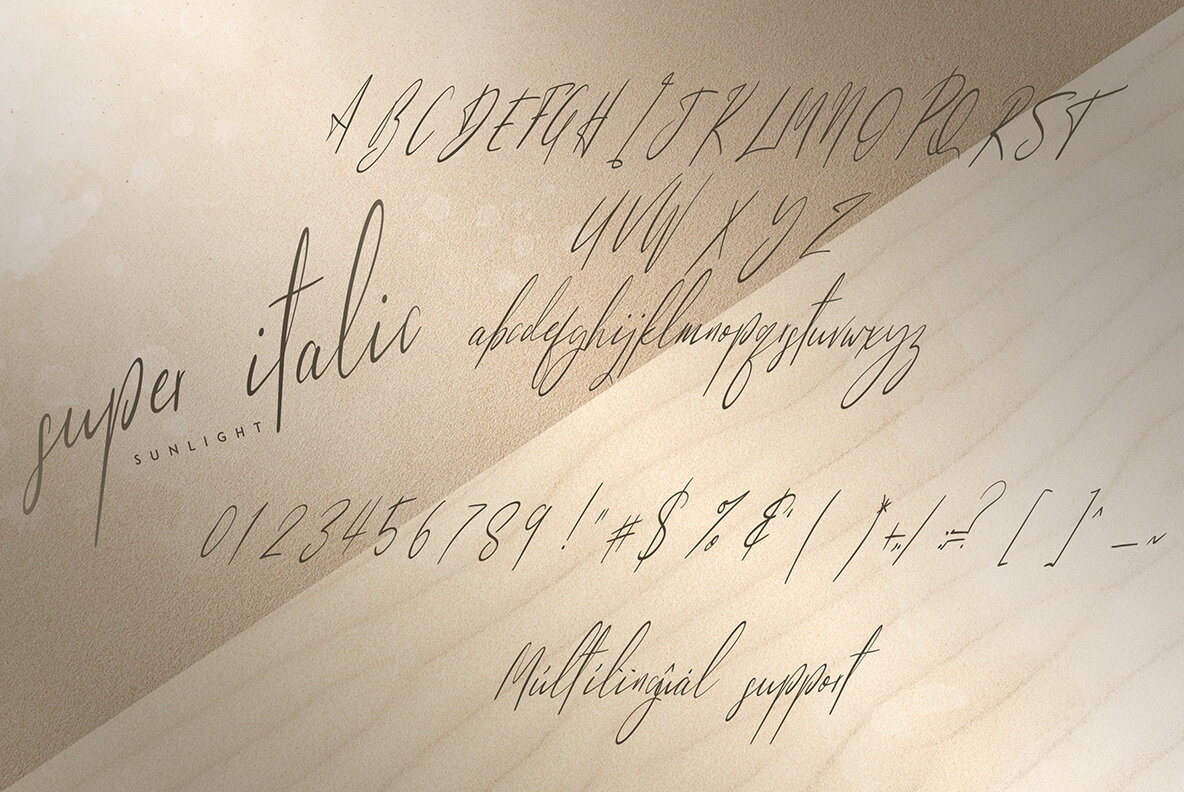 A B C D E F G H I J K L M N O P Q R S T
U V W X Y Z
super italic
SUNLIGHT
abcdefghijklmnopqrstuvwxyz
0 1 2 3 4 5 6 7 8 9 ! " # $ % & ' ( ) * + , / : ; = ? [ ] ^ _ ~
Múltílíngûál support